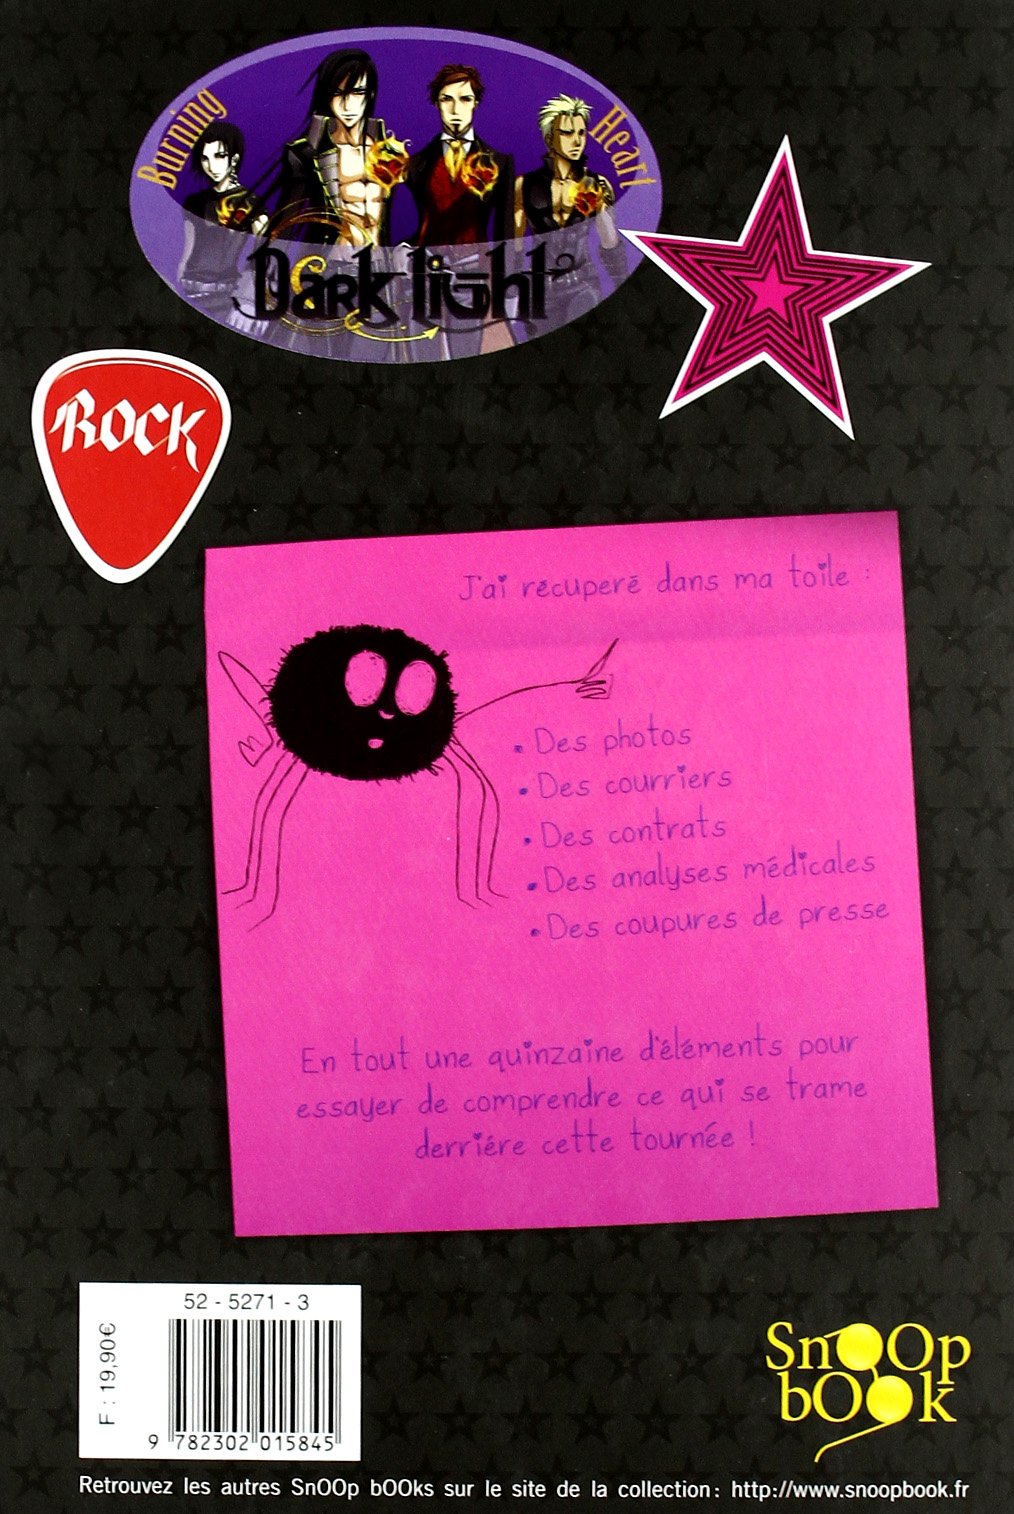 Burning Heart
Dark light
ROCK
J'ai récuperé dans ma toile :
• Des photos
• Des courriers
• Des contrats
• Des analyses médicales
• Des coupures de presse
En tout une quinzaine d'éléments pour
essayer de comprendre ce qui se trame
derriére cette tournée !
52 - 5271 - 3
F : 19,90€
9 782302 015845
SnOOp
bOOk
Retrouvez les autres SnOOp bOOks sur le site de la collection : http://www.snoopbook.fr